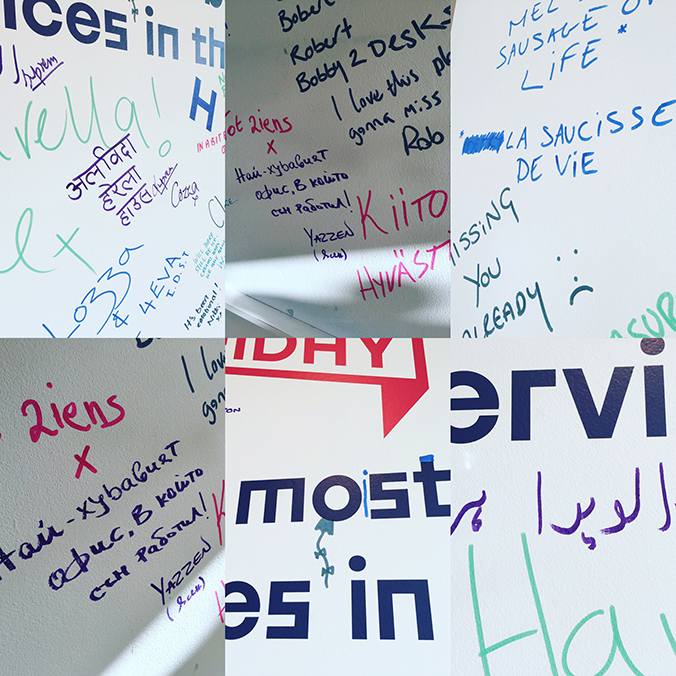 ices in th
Suprem
arella!
H
INABIT
अलविदा
हेरेला
हाउस
Cozza
ex
Lozza
& 4EVA
I.D.S.T
It's been
Bobert
Robert
Bobby 2 Desks
I love this pl
gonna miss
Rob
ot 2iens
x
Най-хубавият
офис, в който
съм работил!
YAZZEN
Kiito
HYVÄSTI
MEL
SAUSAGE OF
LIFE *
*
LA SAUCISSE
DE VIE
MISSING
YOU
ALREADY :(
ASUR
I lov
gon
2iens
x
Най-хубавият
офис, в който
съм работил!
YAZZEN
K
H
IDAY
TON
moist
es in
ervi
الویدا ہر
Ha